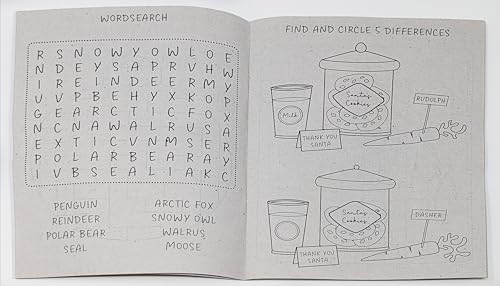 WORDSEARCH
R S N O W Y O W L O E
N D E Y S A P R V H W
I R E I N D E E R M Y
U V P B E H Y X K O P
G E A R C T I C F O X
N C N A W A L R U S A
E X T I C V N M S E R
P O L A R B E A R A Y
I V B S E A L I A K C
PENGUIN
REINDEER
POLAR BEAR
SEAL
ARCTIC FOX
SNOWY OWL
WALRUS
MOOSE
FIND AND CIRCLE 5 DIFFERENCES
Milk
Santa's
Cookies
THANK YOU
SANTA
RUDOLPH
Santa's
Cookies
THANK YOU
SANTA
DASHER